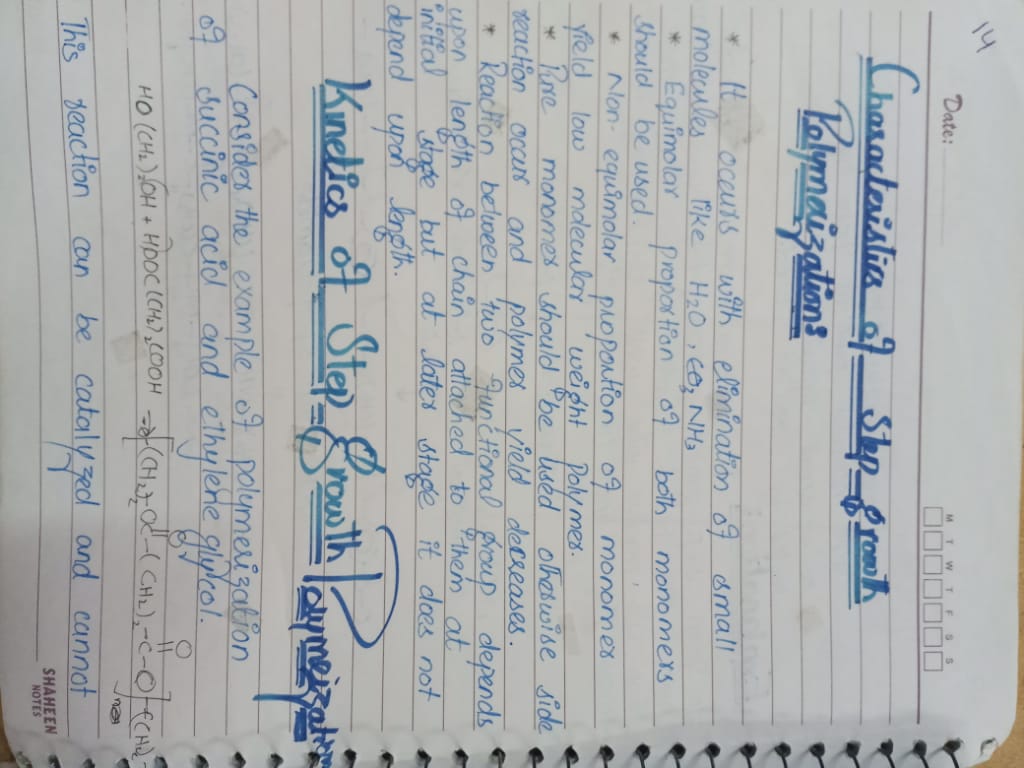 14
Date:
M T W T F S S
Characteristics of Step-growth
Polymaizations
* It occurs with elimination of small
molecules like H2O, CO2, NH3
* Equimolar proportion of both monomers
should be used.
* Non-equimolar proportion of monomers
yield low molecular weight polymer.
* Pure monomer should be used otherwise side
reaction occur and polymer yield decreases.
* Reaction between two functional group depends
upon length of chain attached to them at
initial stage but at later stage it does not
depend upon length.
Kinetics of Step-growth Polymeization
Consider the example of polymerization
of succinic acid and ethylene glycol.
HO(CH2)2OH + HOOC(CH2)2COOH → [(CH2)2-OC-(CH2)2-C-O]
O O
This reaction can be catalyzed and cannot
SHAHEEN
NOTES